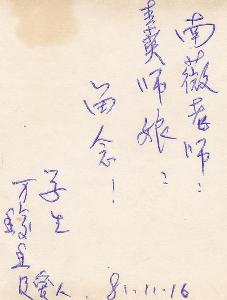 南薇老师：
师娘：
留念！
学生
及爱人
81.11.16